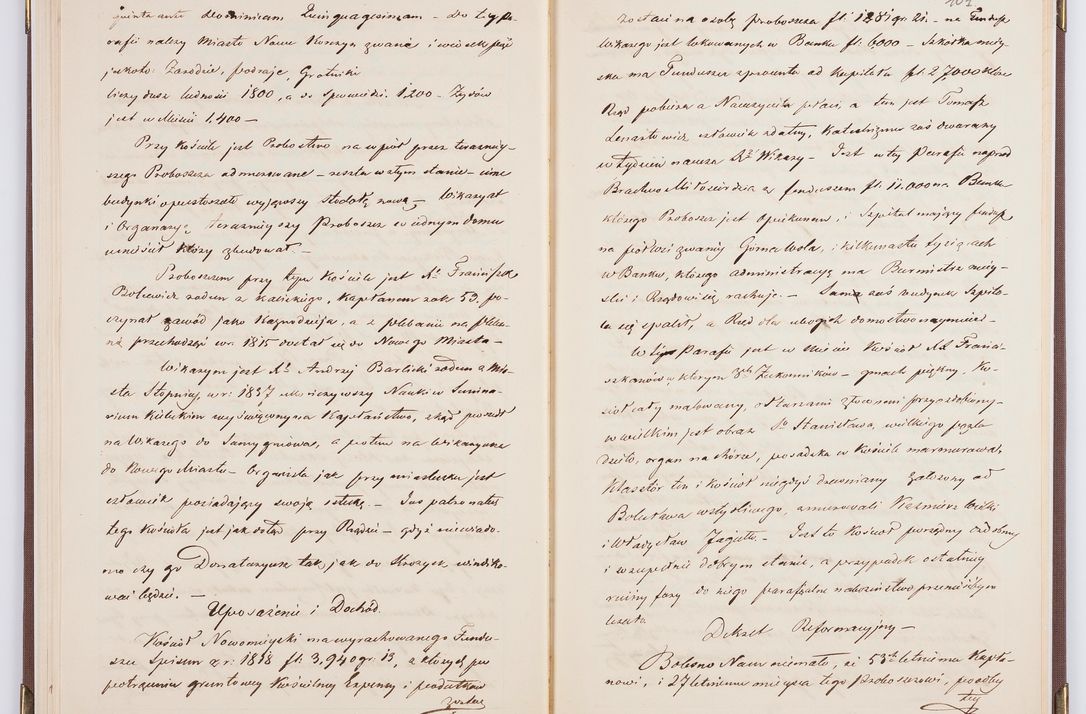 quinta ante Dominicam Quinquagesimam – do tey pa-
rafii należy Miasto Nowe Korczyn zwane i wiosek pięć
jakoto: Zarodzie, podraje, Grotniki
liczy dusz ludności 1800, a do Spowiedzi 1,200 – Żydów
jest w Mieście 1,400 –
Przy Kościele jest Probostwo na wpół przez teraźniey-
szego Proboszcza odmurowane – reszta w złym stanie – inne
budynki opustoszałe wyjąwszy Stodołę nową – Wikaryat
i Organaryą teraźnieyszy Proboszcz w jednym domu
umieścił który zbudował –
Proboszczem przy tym Kościele jest X. Franciszek
rodem z Kaliskiego, Kapłanem rok 53. po-
czynał zawód jako Kaznodzieja, a z plebanii na pleba-
nią przechodząc w r. 1815 dostał się do Nowego Miasta –
Wikarym jest X. Andrzej Barlicki rodem z Mia-
sta Stopnicy, w r: 1837 ukończywszy Nauki w Semina-
rium Kieleckim wyświęcony na Kapłaństwo, skąd poszedł
na Wikarego do a potem na Wikaryusza
do Nowego Miasta – Organista jak przy miasteczku jest
człowiek posiadający swoją sztukę. – Jus patronatus
tego Kościoła jest jak dotąd przy Rządzie – gdyż niewiado-
mo czy go Donataryusz tak, jak do Strożysk windyko-
wać będzie. –
Uposażenie i Dochód.
Kościół Nowomieyski ma wyrachowanego Fundu-
szu Spisem z r: 1818 fl: 3,940 gr 13, z których po
potrąceniu gruntowey Kościelney Expensy i podatków
zostaie
107
zostaie na osobę proboszcza fl: 1281 gr 21 – na Fundusz
Wikarego jest lokowanych w Banku fl: 6,000 – Szkółka miey-
ska ma Fundusze z procentu od Kapitału fl: 27,000 które
Rząd pobiera a Nauczyciela płaci, a tem jest Tomasz
Lenartowicz człowiek zdatny, Katechizmu zaś dwa razy
w tydzień naucza X. Wikary – Jest w tey Parafii naprzód
Bractwo Miłosierdzia z funduszem fl: 11.000 na Banku
którego Proboszcz jest Opiekunem, i Szpital mający fundusz
na półwsi zwaney Gorna wola, i kilkunastu tysiącach
w Banku, którego administracyą ma Burmistrz miey-
ski i Rządowi się rachuje. – Sama zaś budynek Szpita-
la się spalił, a Rząd dla ubogich domostwo naymuie. –
W tey Parafii jest w Mieście Kościół XX Franci-
szkanów w którym 3ch Zakonników – gmach piękny. Ko-
ściół cały malowany, ołtarzami złotemi przyozdobiony –
w wielkim jest obraz S. Stanisława, wielkiego pęzla
dzieło, organ na chórze, posadzka w Kościele marmurowa,
Klasztor ten i kościół niegdyś drewniany założony od
Bolesława wstydliwego, zmurowali Kazmierz wielki
i Władysław Jagiełło – Jest to Kościół porządny ozdobny
i w zupełnie dobrym stanie, a przypadek ostatniey
ruiny fary do niego parafialne nabożeństwo przenieśćby na-
leżało
Dekret Reformacyjny –
Bolesno Nam niemało, że 53 letniemu Kapła-
nowi, i 27 letniemu mieysca tego Proboszczowi, po odby
tey